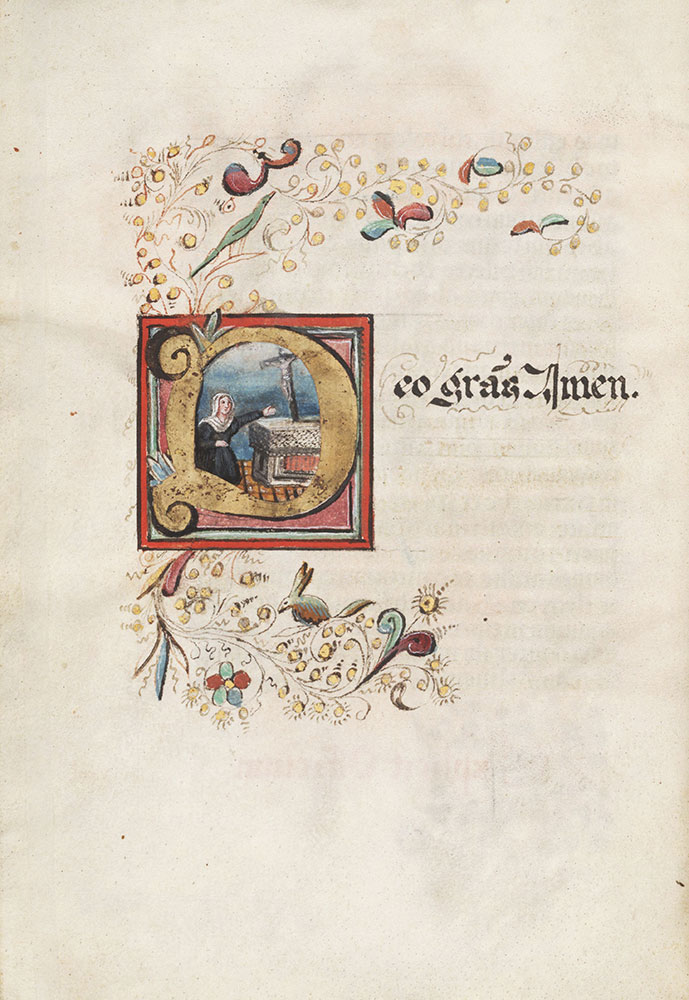 Deo gra̅s Amen.